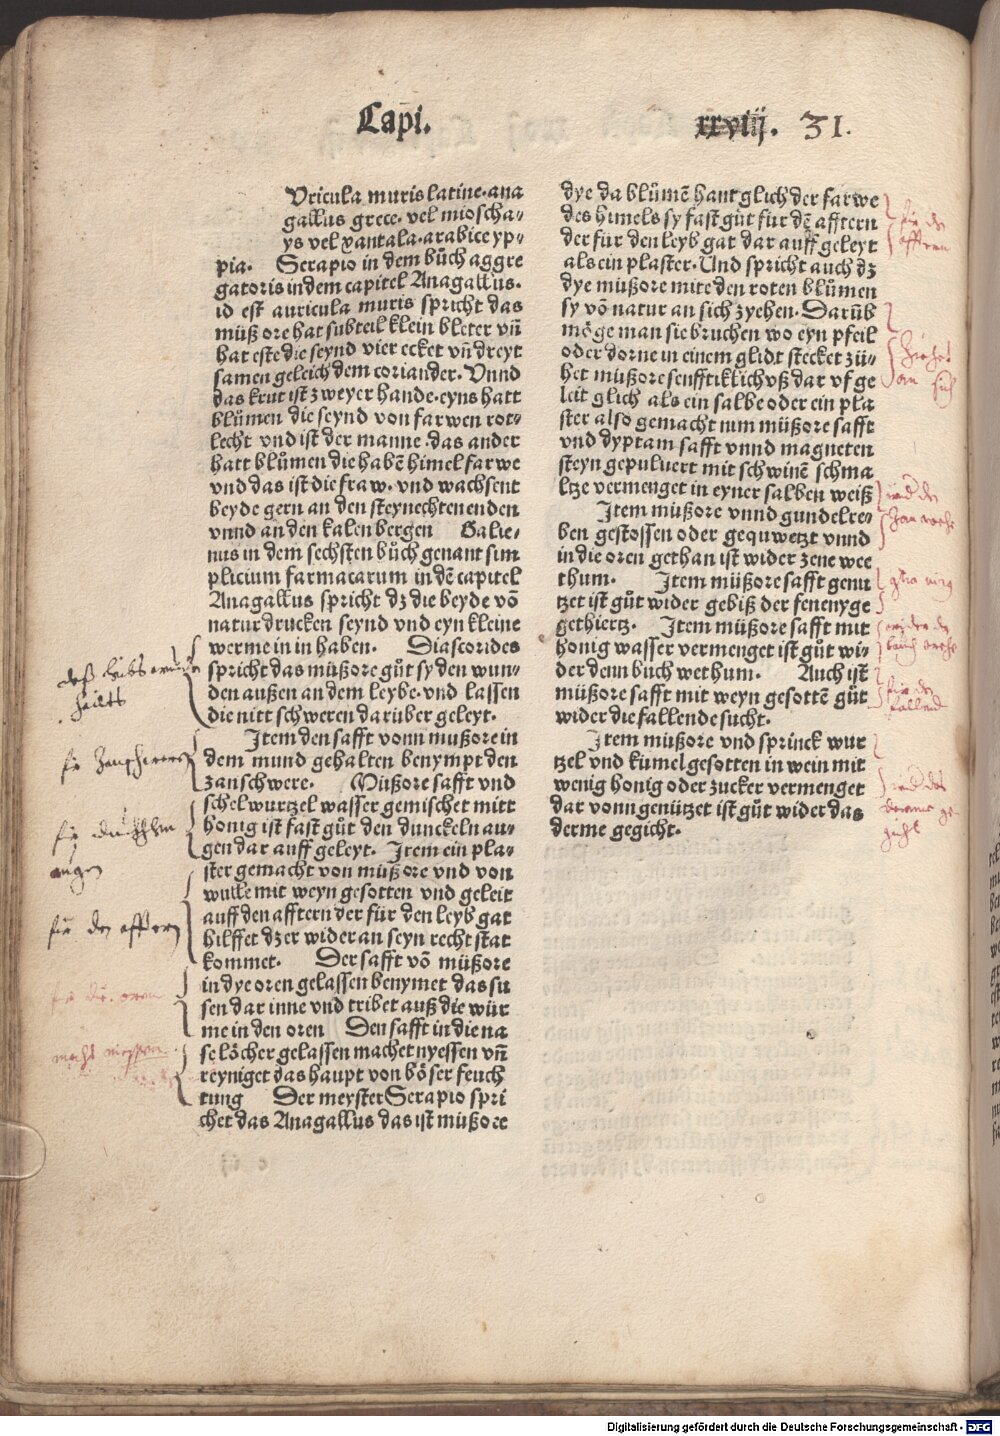 Capi. xxviij. 31.
Vricula muris latine·ana
gallus grece· vel mioscha⸗
ys vel xantala·arabice yp⸗
pia. Serapio in dem bůch aggre
gatoris in dem capitel Anagallus·
id est auricula muris spricht das
müß ore hat subteil klein bleter vn̄
hat este die seynd vier ecket vn̄ dreyt
samen geleich dem coriander· Vnnd
das krut ist zweyer hande·eyns hatt
blůmen die seynd von farwen rot⸗
lecht vnd ist der manne·das ander
hatt blůmen die habē himel farwe
vnd das ist die fraw· vnd wachsent
beyde gern an den steynechten enden
vnnd an den kalen bergen Galie⸗
nus in dem sechsten bůch genant sim
plicium farmacarum in dē capitel
Anagallus spricht dz die beyde vō
natur drucken seynd vnd eyn kleine
werme in in haben. Diascorides
spricht das müßore gůt sy den wun⸗
den außen an dem leybe·vnd lassen
die nitt schweren darüber geleyt·
Item den safft vonn mußore in
dem mund gehalten benympt den
zanschwere. Müßore safft vnd
schelwurtzel wasser gemischet mitt
honig ist fast gůt den dunckeln au⸗
gen dar auff geleyt. Item ein pla⸗
ster gemacht von müßore vnd von
wulle mit weyn gesotten vnd geleit
auff den afftern der für den leyb gat
hilffet dz er wider an seyn recht stat
kommet. Der safft vō müßore
in dye oren gelassen benymet das su
sen dar inne vnd tribet auß die wür
me in den oren Den safft in die na
se löcher gelassen machet nyessen vn̄
reyniget das haupt von böser feuch
tung Der meyster Serapio spri
chet das Anagallus das ist müßore
dye da blůmē hant glich der farwe
des himels sy fast gůt für dē afftern
der für den leyb gat dar auff geleyt
als ein plaster·Und spricht auch dz
dye müßore mite den roten blůmen
sy vō natur an sich zyehen·Darūb
möge man sie bruchen wo eyn pfeil
oder dorne in einem glidt stecket zü⸗
het müßore senfftiklich vß dar vf ge
leit glich als ein salbe oder ein pla
ster also gemacht nim müßore safft
vnd dyptam safft vnnd magneten
steyn gepuluert mit schwinē schma
ltze vermenget in eyner salben weiß
Item müßore vnnd gundelre⸗
ben gestossen oder gequwetzt vnnd
in die oren gethan ist wider zene wee
thum· Item müßore safft genu
tzet ist gůt wider gebiß der fenenyge
gethiertz· Item müßore safft mit
honig wasser vermenget ist gůt wi⸗
der denn buch wethum. Auch ist
müßore safft mit weyn gesottē gůt
wider die fallende sucht·
Item müßore vnd sprinck wur
tzel vnd kümel gesotten in wein mit
wenig honig oder zucker vermenget
dar vonn genützet ist gůt wider das
derme gegicht·
augen
für den affteren
für de
affteren
Ziehet
an sich
Digitalisierung gefördert durch die Deutsche Forschungsgemeinschaft - DFG